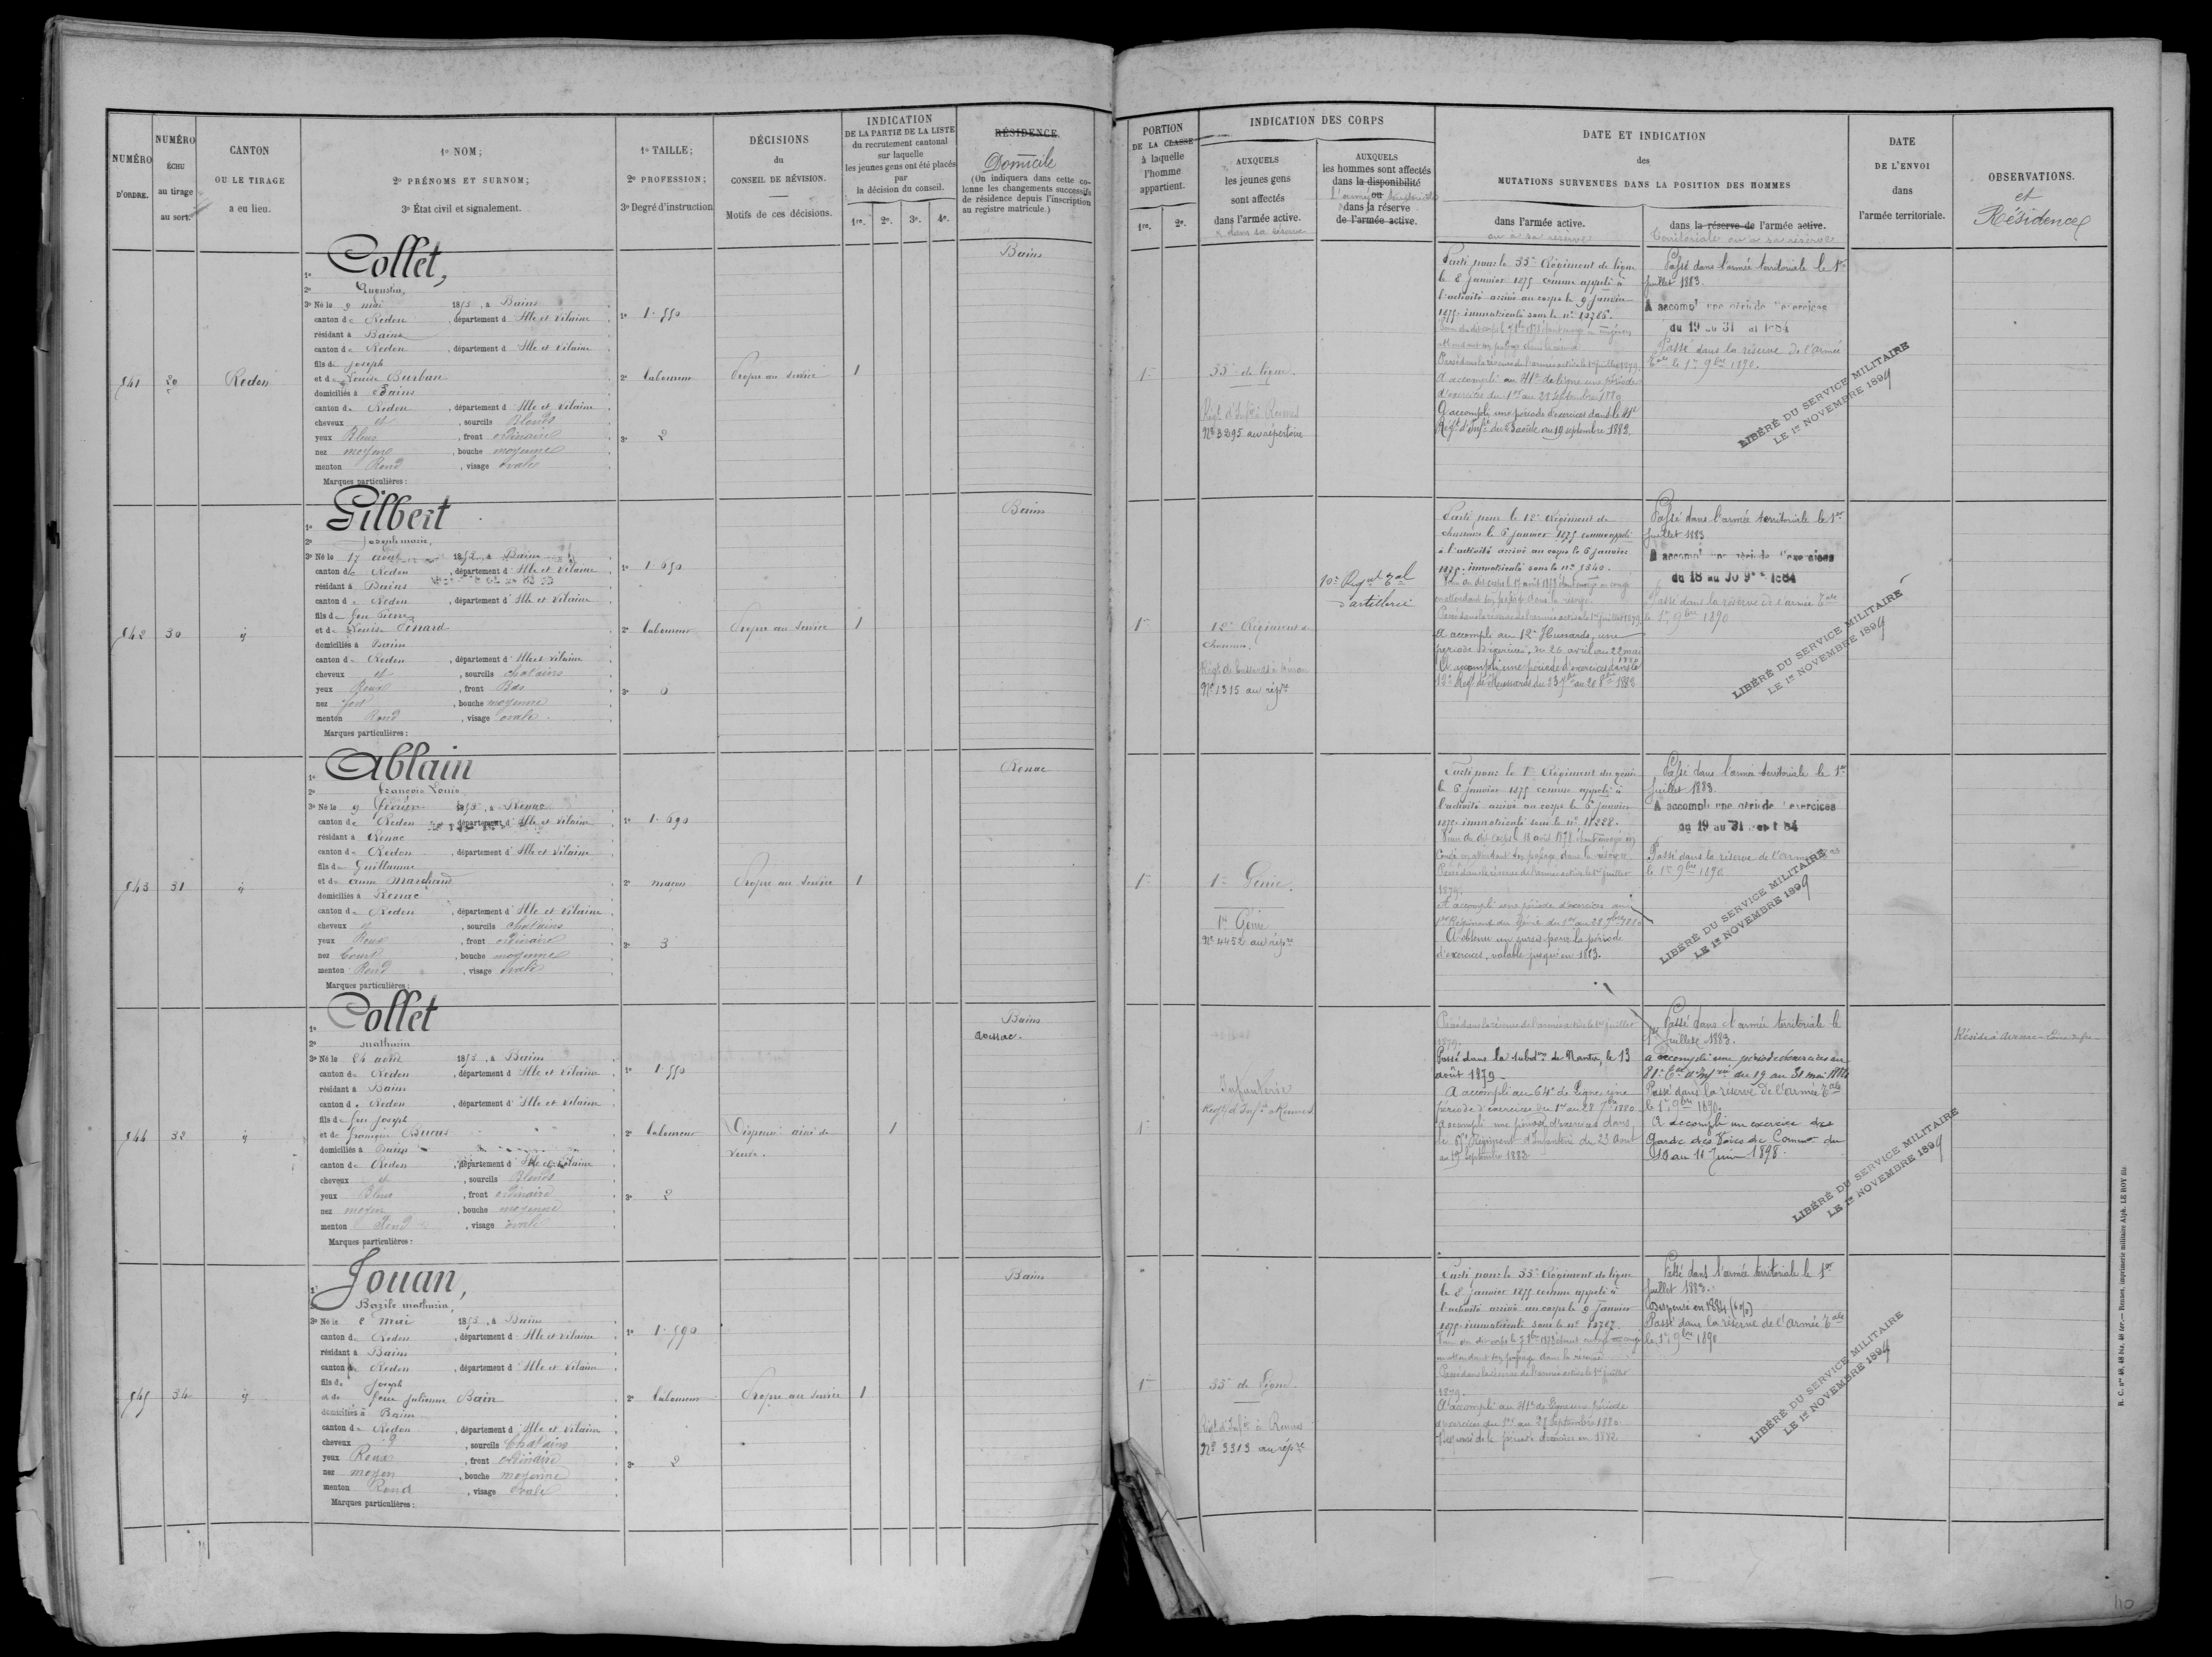 NUMÉRO
D'ORDRE.
NUMÉRO
ÉCHU
au tirage
au sort.
CANTON
OU LE TIRAGE
a eu lieu.
1º NOM;
2º PRÉNOMS ET SURNOM;
3º État civil et signalement.
1º TAILLE;
2º PROFESSION;
3º Degré d'instruction
DÉCISIONS
du
CONSEIL DE RÉVISION.
Motifs de ces décisions.
INDICATION
DE LA PARTIE DE LA LISTE
du recrutement cantonal
sur laquelle
les jeunes gens ont été placés
par
la décision du conseil.
1re. 2e. 3e. 4e.
RÉSIDENCE
Domicile
(On indiquera dans cette co-
lonne les changements successifs
de résidence depuis l'inscription
au registre matricule.)
PORTION
DE LA CLASSE
à laquelle
l'homme
appartient.
1re. 2e.
INDICATION DES CORPS
AUXQUELS
les jeunes gens
sont affectés
dans l'armée active.
& dans sa réserve
AUXQUELS
les hommes sont affectés
dans la disponibilité
ou
dans la réserve
de l'armée active.
DATE ET INDICATION
des
MUTATIONS SURVENUES DANS LA POSITION DES HOMMES
dans l'armée active.
ou à sa réserve
dans la réserve de l'armée active.
territoriale ou à sa réserve
DATE
DE L'ENVOI
dans
l'armée territoriale.
OBSERVATIONS.
et
Résidence
541 Redon
1º Collet,
2º Augustin,
3º Né le 9 mai 1853, à Bains
canton de Redon, département d'Ille et Vilaine
résidant à Bains
canton de Redon, département d'Ille et Vilaine
fils de Joseph
et de Louise Burban
domiciliés à Bains
canton de Redon, département d'Ille et Vilaine
cheveux et, sourcils Blonds
yeux Bleus, front ordinaire
nez moyen, bouche moyenne
menton Rond, visage ovale
Marques particulières:
1º 1.550
2º laboureur
3º 2
Propre au service 1
Bains
1re
33e de ligne.
Régt d'Infie à Rennes
Nº 3295 au répertoire
Parti pour le 33e Régiment de ligne
le 8 janvier 1875 comme appelé à
l'activité arrivé au corps le 9 janvier
1875. immatriculé sous le nº
Passé dans la réserve de l'armée active le 1er juillet 1879.
A accompli au 41e de ligne une période
d'exercices du 1er au 28 septembre 1880
A accompli une période d'exercices dans le 41e
Régt d'Infie du août au 19 septembre 1882.
Passé dans l'armée territoriale le 1er
juillet 1883.
A accompli une période d'exercices
du 19 au 31
Passé dans la réserve de l'armée
tale le 1er 9bre 1890.
LIBÉRÉ DU SERVICE MILITAIRE
LE 1er NOVEMBRE 1899
542 30 id
1º Gilbert
2º Joseph marie,
3º Né le 17 août 1853, à Bains
canton de Redon, département d'Ille et Vilaine
résidant à Bains
canton de Redon, département d'Ille et Vilaine
fils de feu Pierre
et de Louise
domiciliés à Bains
canton de Redon, département d'Ille et Vilaine
cheveux et, sourcils chatains
yeux Roux, front Bas
nez fort, bouche moyenne
menton Rond, visage ovale
Marques particulières:
1º 1.650
2º laboureur
3º 0
Propre au service 1
Bains
1re
12e Régiment de
chasseurs.
Régt de hussards à Dinan
Nº 1315 au répre
10e Régt tal
d'artillerie
Parti pour le 12e Régiment de
chasseurs le 6 janvier 1875 comme appelé
à l'activité arrivé au corps le 6 janvier
1875. immatriculé sous le nº 1540.
en attendant son passage dans la réserve.
Passé dans la réserve de l'armée active le 1er juillet 1879.
A accompli au 12e Hussards, une
période d'exercices, du 26 avril au 22 mai
A accompli une période d'exercices dans le
Régt de Hussards du 23 7bre au 20 8bre 1882
Passé dans l'armée territoriale le 1er
juillet 1883
A accompli une période d'exercices
du 18 au 30 9bre 1884
Passé dans la réserve de l'armée tale
le 1er 9bre 1890
LIBÉRÉ DU SERVICE MILITAIRE
LE 1er NOVEMBRE 1899
543 31 id
1º Ablain
2º François Louis
3º Né le 9 février 1853, à Renac
canton de Redon, département d'Ille et Vilaine
résidant à Renac
canton de Redon, département d'Ille et Vilaine
fils de Guillaume
et de anne Marchand
domiciliés à Renac
canton de Redon, département d'Ille et Vilaine
cheveux et, sourcils chatains
yeux Roux, front ordinaire
nez court, bouche moyenne
menton Rond, visage ovale
Marques particulières:
1º 1.690
2º maçon
3º 3
Propre au service 1
Renac
1re
1er Génie.
1er Génie
Nº 4452 au répre
Parti pour le 1er Régiment du génie
le 6 janvier 1875 comme appelé à
l'activité arrivé au corps le 6 janvier
1875. immatriculé sous le nº 11228.
congé en attendant son passage dans la réserve.
Passé dans la réserve de l'armée active le 1er juillet
1879.
A accompli une période d'exercices au
1er Régiment du Génie du 1er au 28 1880
A obtenu un sursis pour la période
d'exercices, valable jusqu'en 1883.
Passé dans l'armée territoriale le 1er
juillet 1883.
A accompli une période d'exercices
du 19 au 31
Passé dans la réserve de l'armée tale
le 1er 9bre 1890
LIBÉRÉ DU SERVICE MILITAIRE
LE 1er NOVEMBRE 1899
544 32 id
1º Collet
2º mathurin
3º Né le 24 août 1853, à Bains
canton de Redon, département d'Ille et Vilaine
résidant à Bains
canton de Redon, département d'Ille et Vilaine
fils de feu Joseph
et de françoise
domiciliés à Bains
canton de Redon, département d'Ille et Vilaine
cheveux et, sourcils Blonds
yeux Bleus, front ordinaire
nez moyen, bouche moyenne
menton Rond, visage ovale
Marques particulières:
1º 1.550
2º laboureur
3º 2
Dispensé ainé de
veuve.
1
Bains
1re
Infanterie
Régt d'Infie à Rennes
Passé dans la réserve de l'armée active le 1er juillet
1879.
Passé dans la subdon de Nantes, le 13
août 1879.
A accompli au 64e de Ligne, une
période d'exercices du 1er au 28 7bre 1880
A accompli une période d'exercices dans
le Régiment d'Infanterie du 23 Août
au 19 Septembre 1883
Passé dans l'armée territoriale le
1er juillet 1883.
a accompli une période d'exercices au
81e d'Infrie du 19 au 31 mai 1884
Passé dans la réserve de l'armée tale
le 1er 9bre 1890.
A accompli un exercice des
Garde des Voies de Common du
10 au 11 Juin 1898.
LIBÉRÉ DU SERVICE MILITAIRE
LE 1er NOVEMBRE 1899
545 34 id
1º Jouan,
2º Bazile mathurin,
3º Né le 2 mai 1853, à Bains
canton de Redon, département d'Ille et Vilaine
résidant à Bains
canton de Redon, département d'Ille et Vilaine
fils de Joseph
et de feue Julienne Bain
domiciliés à Bains
canton de Redon, département d'Ille et Vilaine
cheveux et, sourcils Chatains
yeux Roux, front ordinaire
nez moyen, bouche moyenne
menton Rond, visage ovale
Marques particulières:
1º 1.590
2º laboureur
3º 2
Propre au service 1
Bains
1re
33e de Ligne.
Régt d'Infie à Rennes
Nº 3313 au répre
Parti pour le 33e Régiment de ligne
le 8 janvier 1875 comme appelé à
l'activité arrivé au corps le 9 janvier
1875. immatriculé sous le nº
en attendant son passage dans la réserve
Passé dans la réserve de l'armée active le 1er juillet
1879.
A accompli au 41e de Ligne une période
d'exercices du 1er au 28 Septembre 1880
Dispensé de la période d'exercices en 1882
Passé dans l'armée territoriale le 1er
juillet 1883.
Dispensé en 1884
Passé dans la réserve de l'armée tale
le 1er 9bre 1890
LIBÉRÉ DU SERVICE MILITAIRE
LE 1er NOVEMBRE 1899
R. C. nos 48, 48 bis, 48 ter.— Rennes, imprimerie militaire Alph. LE ROY fils